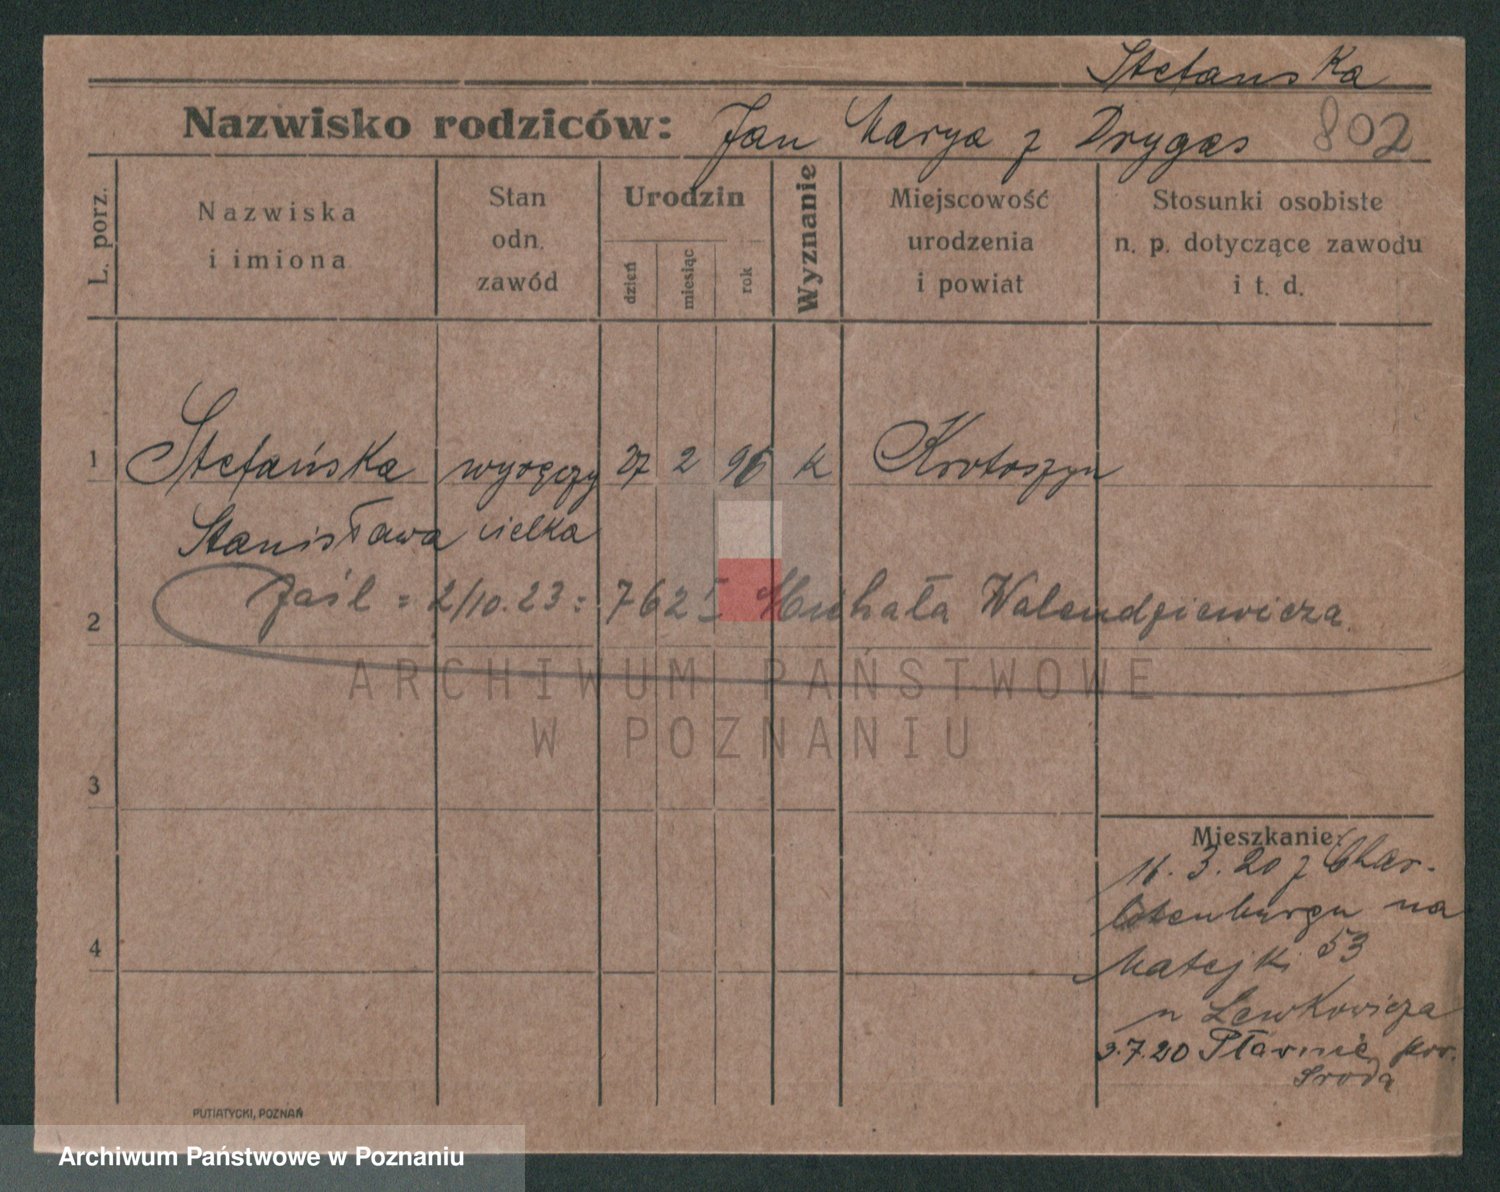 Stefanska
Nazwisko rodziców: Jan Marya z Drygas 802
L. porz.
Nazwiska
i imiona
Stan
odn.
zawód
Urodzin
dzień
miesiąc
rok
Wyznanie
Miejscowość
urodzenia
i powiat
Stosunki osobiste
n. p. dotyczące zawodu
i t. d.
1 Stefańska wyręczy 27 2 96 k Krotoszyn
Stanisława cielka
2 Zaśl = 2/10.23 = 762 Michała Walendziewicza
ARCHIWUM PAŃSTWOWE
W POZNANIU
3
Mieszkanie:
16.3.20 z Char-
lotenburgu na
4 Matejki 53
u Lewkowicza
3.7.20 Pławnie pow.
Środa
PUTIATYCKI, POZNAŃ
Archiwum Państwowe w Poznaniu